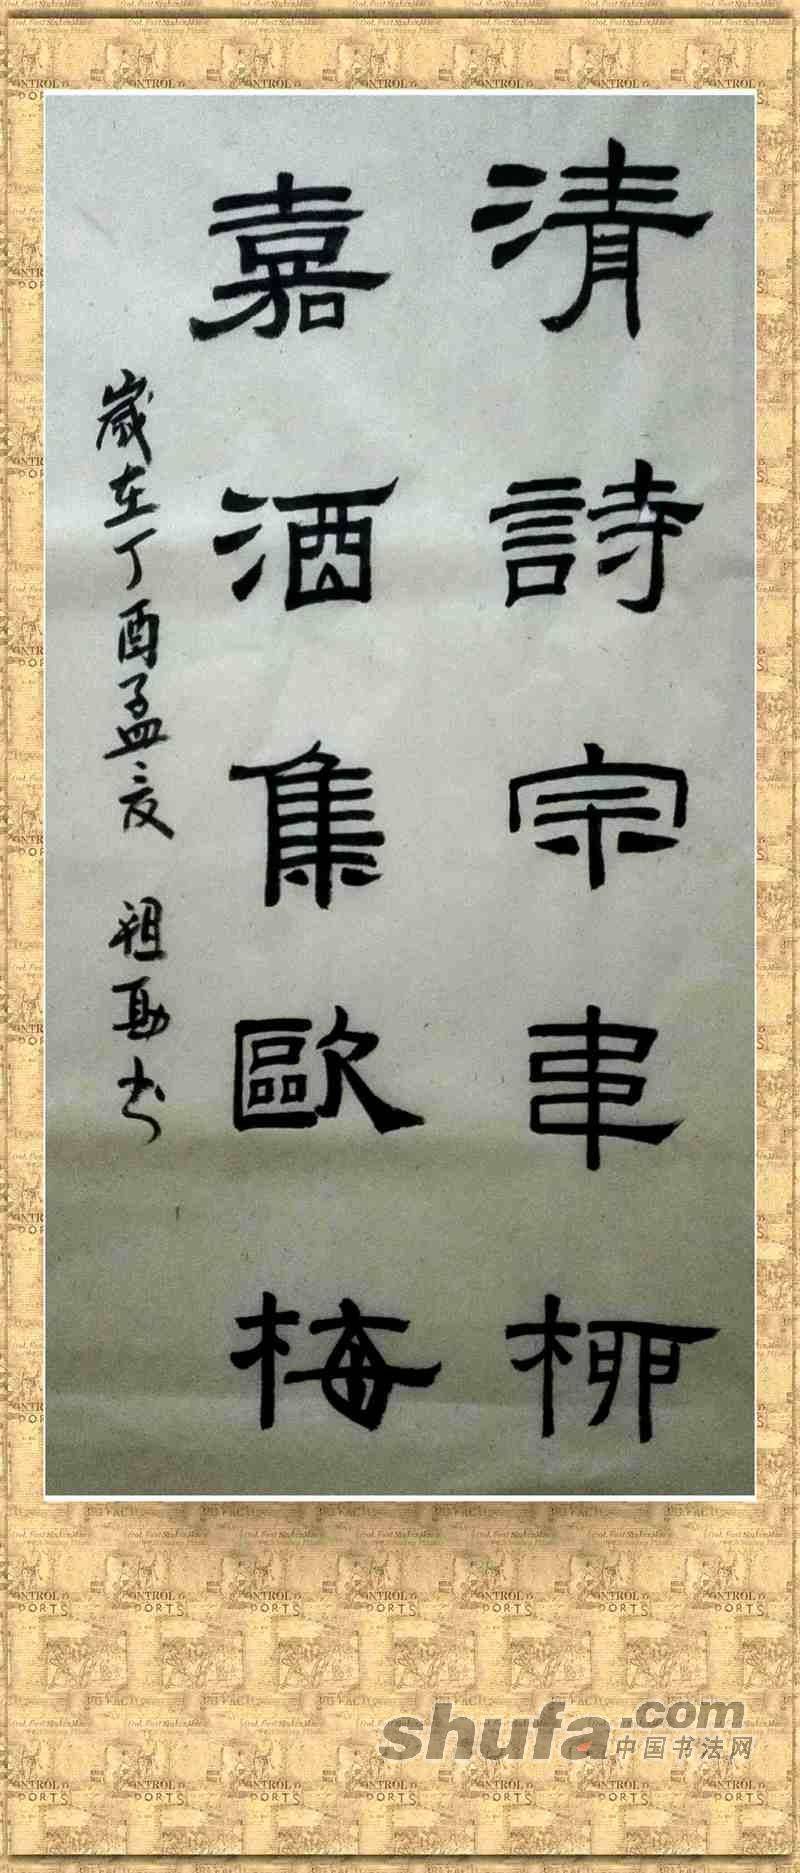 清詩宗韋柳
嘉酒集歐梅
歲在丁酉孟夏 祖 书
shufa.com
中国书法网